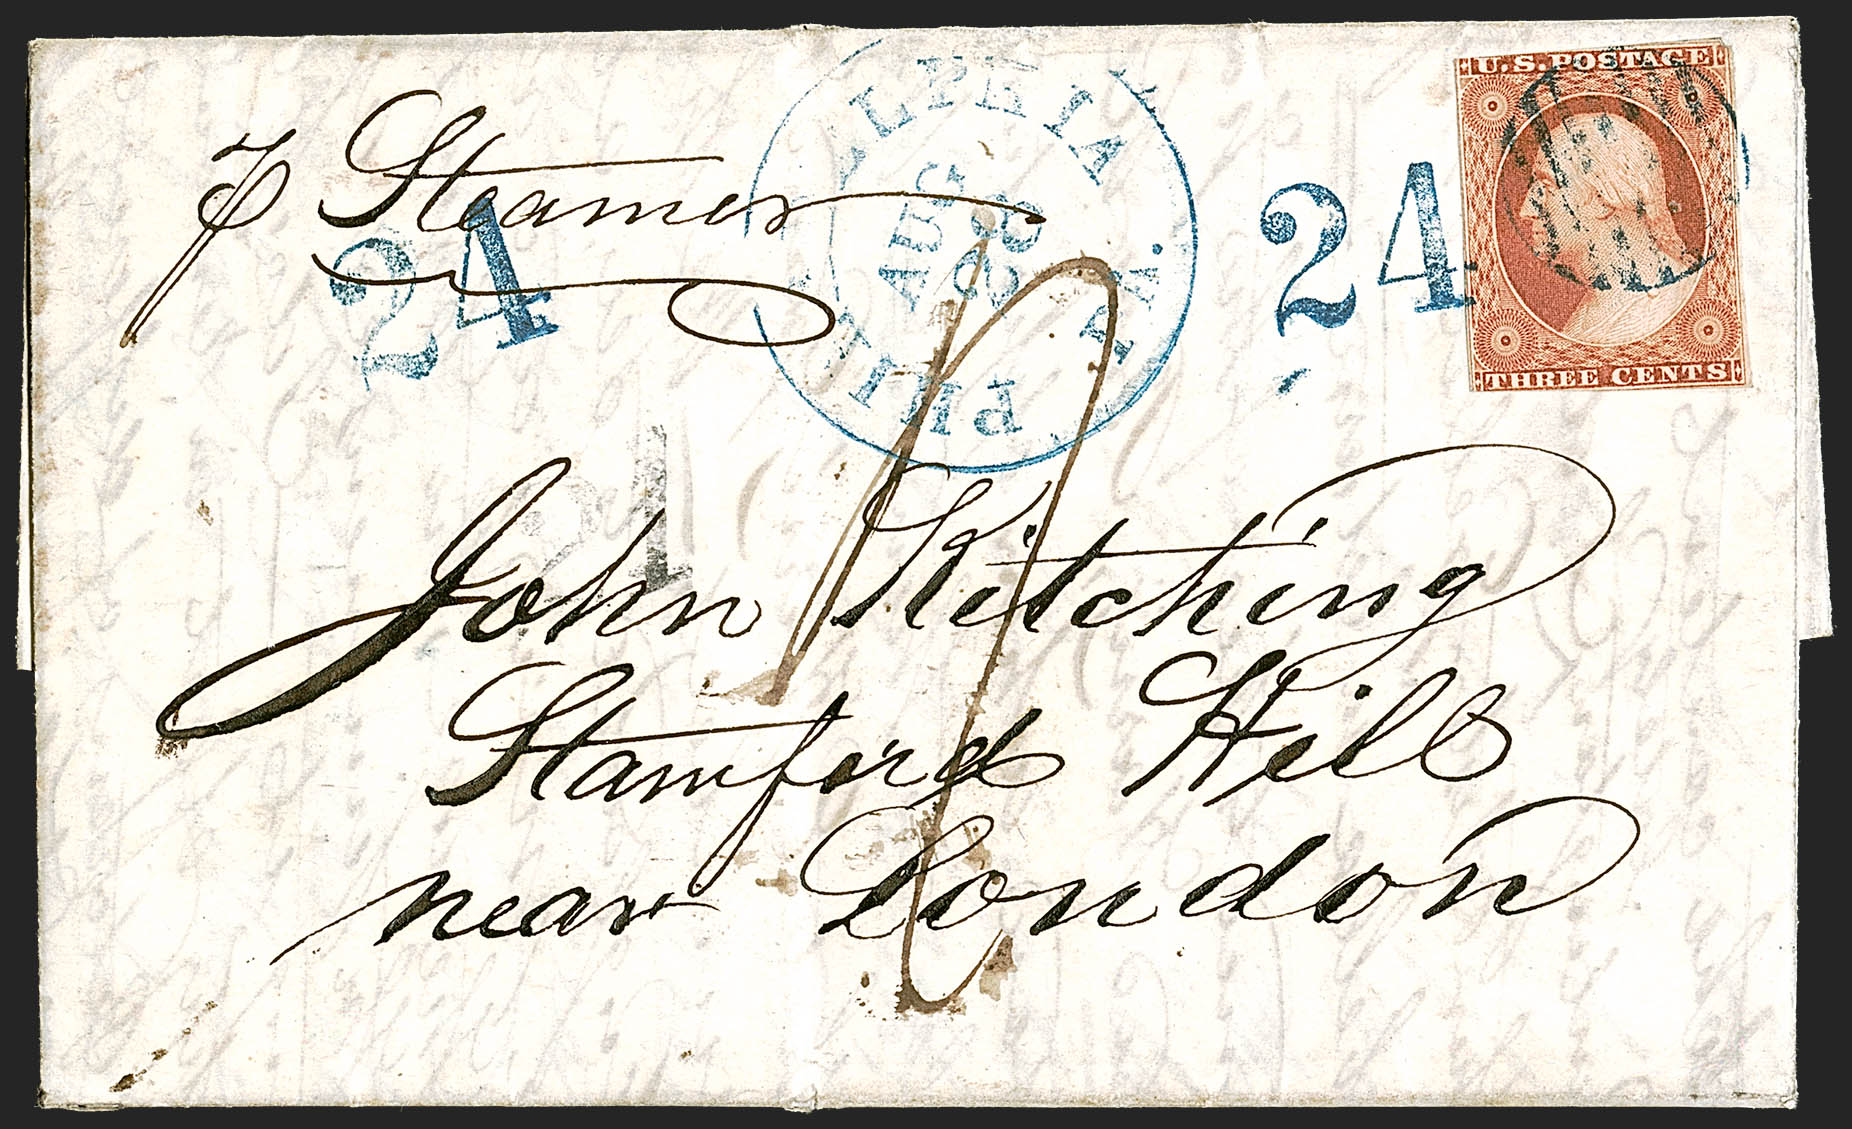 U.S. POSTAGE
THREE CENTS
PHILADELPHIA PA.
AUG
28
p Steamer
24
24
John Kitching
Stamford Hill
near London